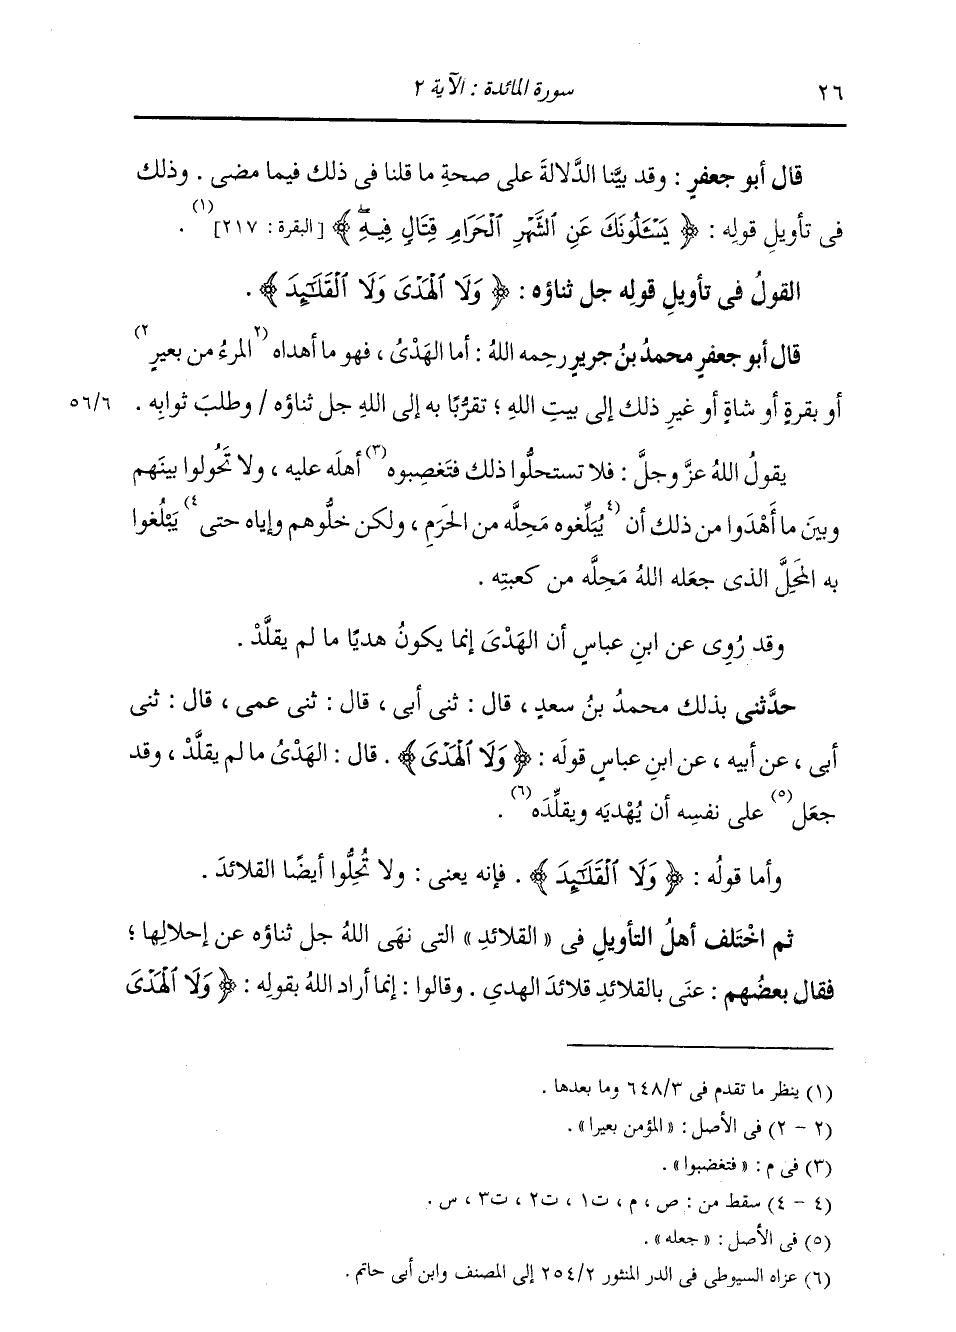 ٢٦
سورة المائدة : الآية ٢
قال أبو جعفرٍ : وقد بيَّنا الدَّلالةَ على صحةِ ما قلنا فى ذلك فيما مضى . وذلك
فى تأويلِ قولِه : ﴿ يَسْـَٔلُونَكَ عَنِ ٱلشَّهْرِ ٱلْحَرَامِ قِتَالٍ فِيهِۖ ﴾ [ البقرة : ٢١٧]⁽¹⁾ .
القولُ فى تأويلِ قولِه جل ثناؤه : ﴿ وَلَا ٱلْهَدْىَ وَلَا ٱلْقَلَـٰٓئِدَ ﴾ .
قال أبو جعفرٍ محمدُ بنُ جريرٍ رحِمه اللهُ : أما الهَدْىُ ، فهو ما أهداه (٢المرءُ من بعيرٍ٢)
أو بقرةٍ أو شاةٍ أو غيرِ ذلك إلى بيتِ اللهِ ؛ تقرُّبًا به إلى اللهِ جل ثناؤه / وطلبَ ثوابِه . ٥٦/٦
يقولُ اللهُ عزَّ وجلَّ : فلا تستحلُّوا ذلك فتَغصِبوه(٣) أهلَه عليه ، ولا تَحُولوا بينَهم
وبينَ ما أَهْدَوا من ذلك أن (٤يُبَلِّغوه مَحِلَّه من الحَرَمِ ، ولكن خلُّوهم وإياه حتى٤) يَبْلُغوا
به المَحِلَّ الذى جعَله اللهُ مَحِلَّه من كعبتِه .
وقد رُوِى عن ابنِ عباسٍ أن الهَدْىَ إنما يكونُ هديًا ما لم يقلَّدْ .
حدَّثنى بذلك محمدُ بنُ سعدٍ ، قال : ثنى أبى ، قال : ثنى عمى ، قال : ثنى
أبى ، عن أبيه ، عن ابنِ عباسٍ قولَه : ﴿ وَلَا ٱلْهَدْىَ ﴾ . قال : الهَدْىُ ما لم يقلَّدْ ، وقد
جعَل(٥) على نفسِه أن يُهْديَه ويقلِّدَه(٦) .
وأما قولُه : ﴿ وَلَا ٱلْقَلَـٰٓئِدَ ﴾ . فإنه يعنى : ولا تُحِلُّوا أيضًا القلائدَ .
ثم اخْتَلف أهلُ التأويلِ فى « القلائدِ » التى نهَى اللهُ جل ثناؤه عن إحلالِها ؛
فقال بعضُهم : عنَى بالقلائدِ قلائدَ الهدي . وقالوا : إنما أراد اللهُ بقولِه : ﴿ وَلَا ٱلْهَدْىَ
(١) ينظر ما تقدم فى ٦٤٨/٣ وما بعدها .
(٢ - ٢) فى الأصل : « المؤمن بعيرا » .
(٣) فى م : « فتغضبوا » .
(٤ - ٤) سقط من : ص ، م ، ت١ ، ت٢ ، ت٣ ، س .
(٥) فى الأصل : « جعله » .
(٦) عزاه السيوطى فى الدر المنثور ٢٥٤/٢ إلى المصنف وابن أبى حاتم .